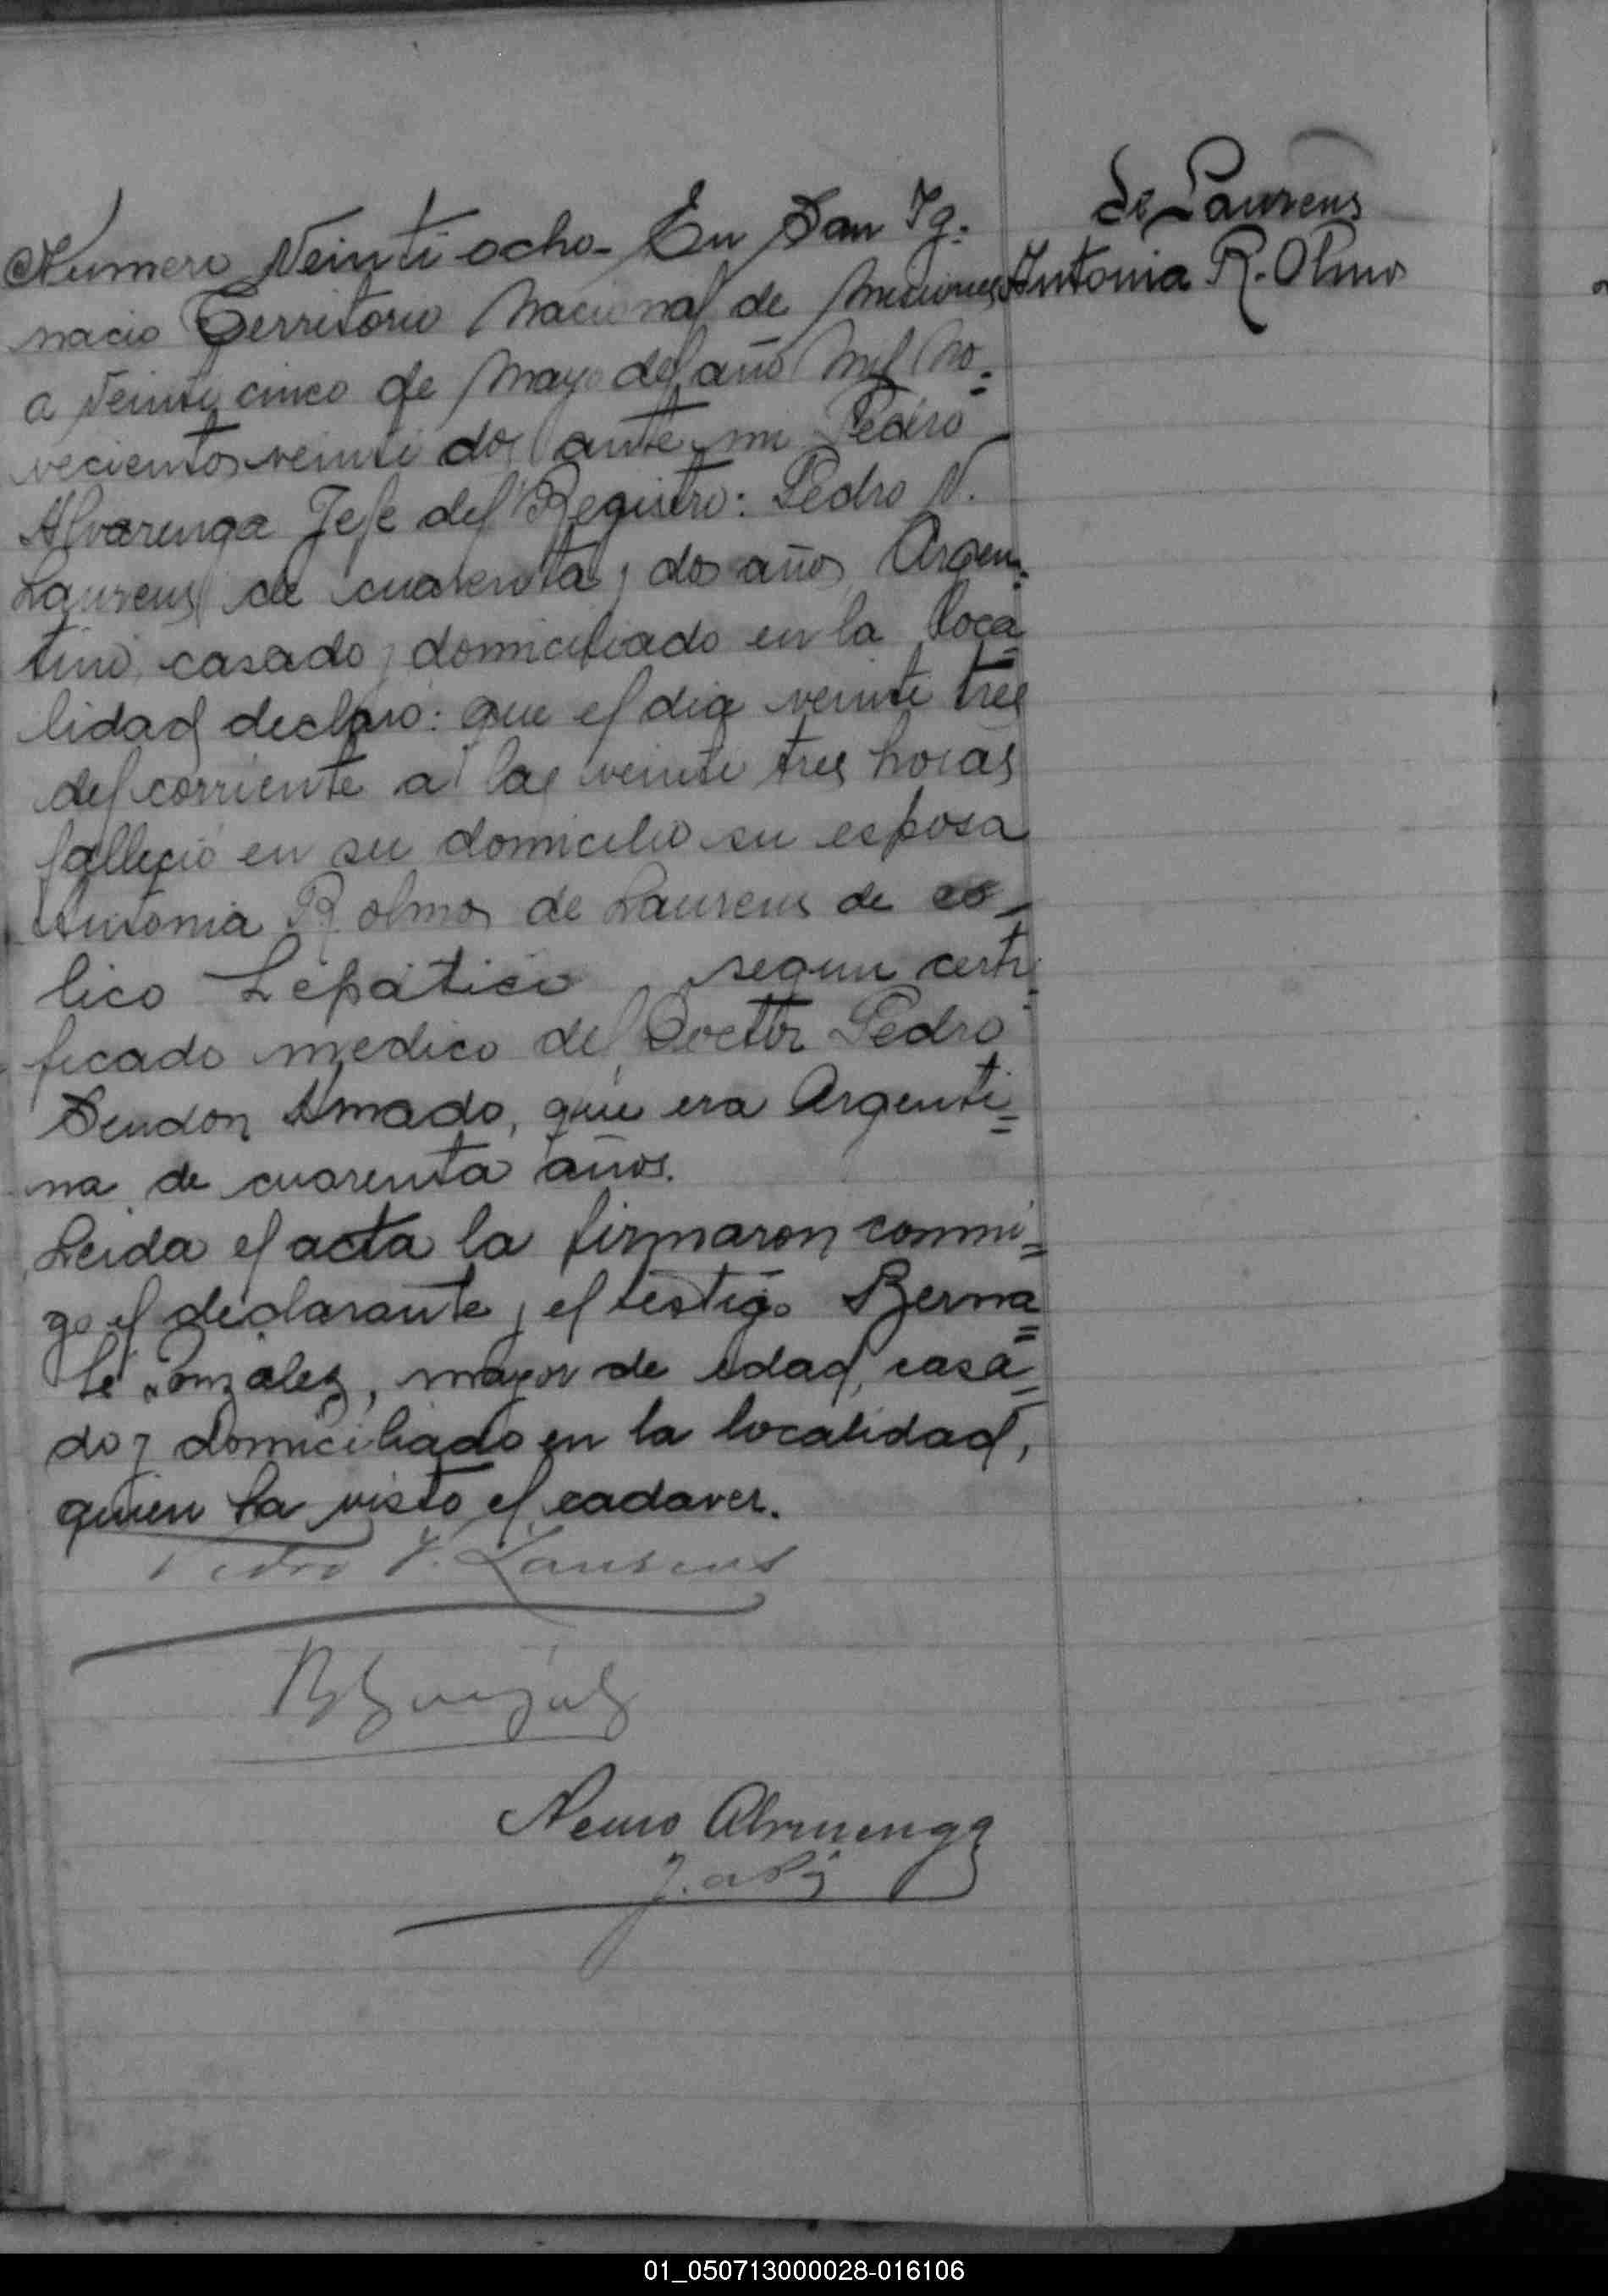 de Laurens
Antonia R. Olmos
Numero Veinti ocho - En San Ig-
nacio Territorio Nacional de Misiones
a veinti cinco de Mayo del año mil no-
vecientos veinti dos ante mi Pedro
Alvarenga Jefe del Registro: Pedro V.
Laurens de cuarenta y dos años, Argen-
tino, casado y domiciliado en la loca-
lidad declaro: que el dia veinti tres
del corriente a las veinti tres horas
falleció en su domicilio su esposa
Antonia R olmos de Laurens de co-
lico hepático segun certi-
ficado medico del Doctor Pedro
Sendon Amado, que era Argenti-
na de cuarenta años.
Leida el acta la firmaron conmi-
go el declarante y el testigo Berna-
bé Gonzalez, mayor de edad, casa-
do y domiciliado en la localidad,
quien ha visto el cadaver.
Pedro V. Laurens
Alvarenga
01_050713000028-016106